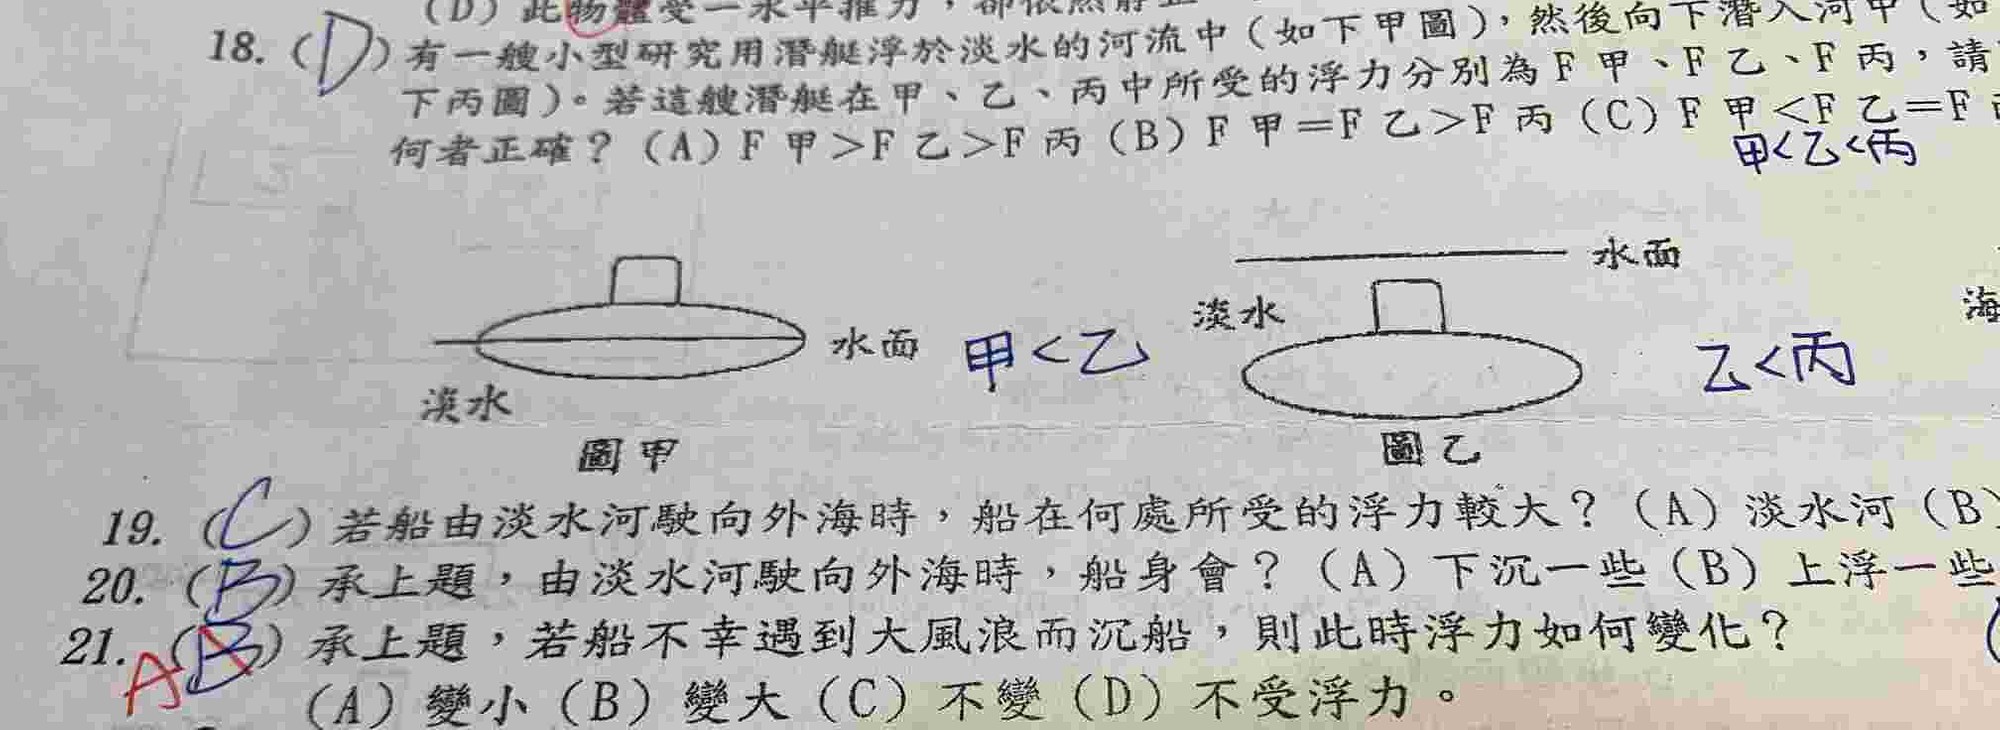 (D) 此物體受一水平推力，卻依然靜止
18. (D) 有一艘小型研究用潛艇浮於淡水的河流中(如下甲圖)，然後向下潛入河中(如
下丙圖)。若這艘潛艇在甲、乙、丙中所受的浮力分別為F甲、F乙、F丙，請
何者正確？(A)F甲>F乙>F丙(B)F甲=F乙>F丙(C)F甲<F乙=F
甲<乙<丙
水面
淡水
海
水面 甲<乙 乙<丙
淡水
圖甲 圖乙
19. (C) 若船由淡水河駛向外海時，船在何處所受的浮力較大？(A)淡水河(B)
20. (B) 承上題，由淡水河駛向外海時，船身會？(A)下沉一些(B)上浮一些
21. A (B) 承上題，若船不幸遇到大風浪而沉船，則此時浮力如何變化？
(A)變小(B)變大(C)不變(D)不受浮力。